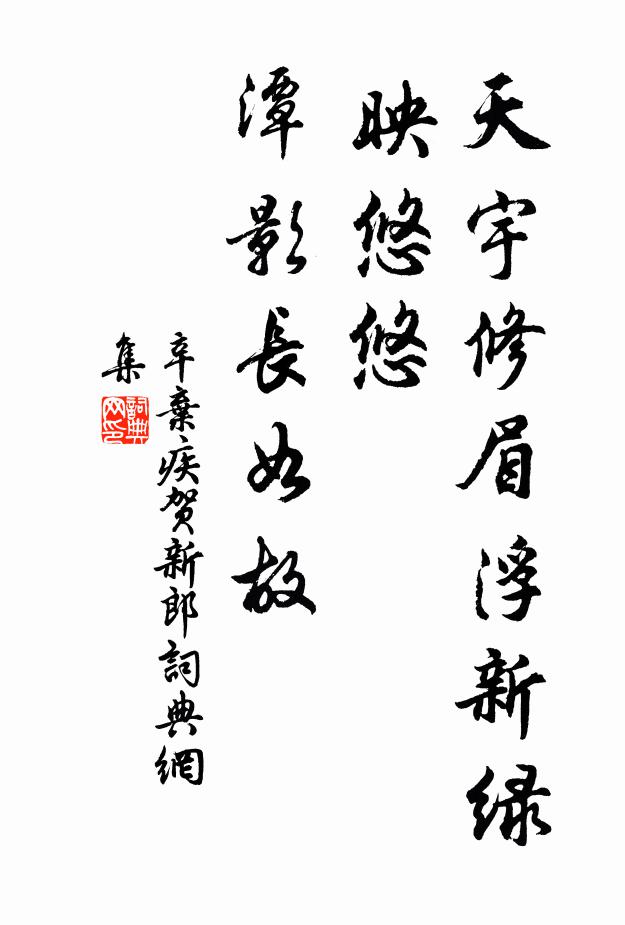 天宇修眉浮新绿
映悠悠
潭影長如故
辛棄疾贺新郎詞典網
集
詞典
网印